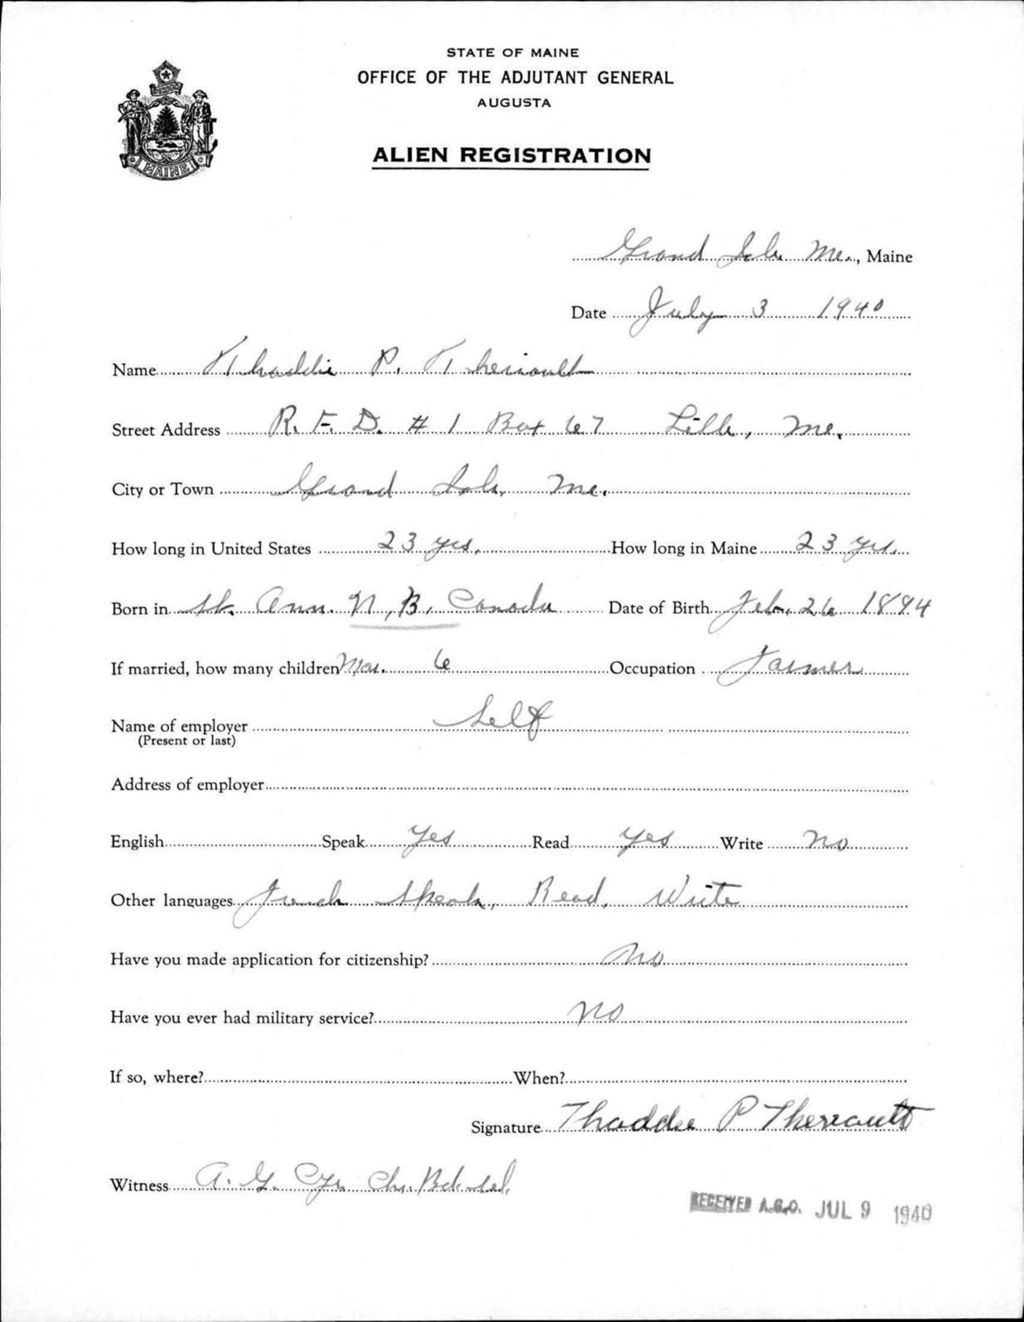 STATE OF MAINE
OFFICE OF THE ADJUTANT GENERAL
AUGUSTA
ALIEN REGISTRATION
MAINE
Grand Isle Me., Maine
Date July 3 1940
Name Thaddie P. Theriault
Street Address R. F. D. # 1 Box 67 Lille, Me.
City or Town Grand Isle, Me.
How long in United States 23 yrs. How long in Maine 23 yrs.
Born in St. Ann. N. B. Canada Date of Birth Feb. 26 1894
If married, how many children Mar. 6 Occupation Farmer
Name of employer Self
(Present or last)
Address of employer
English Speak Yes Read Yes Write No
Other languages French Speak, Read, Write
Have you made application for citizenship? No
Have you ever had military service? No
If so, where? When?
Signature Thaddee P Theriault
Witness A. G. Cyr Ch. Bd. Sel.
RECEIVED A.G.O. JUL 9 1940